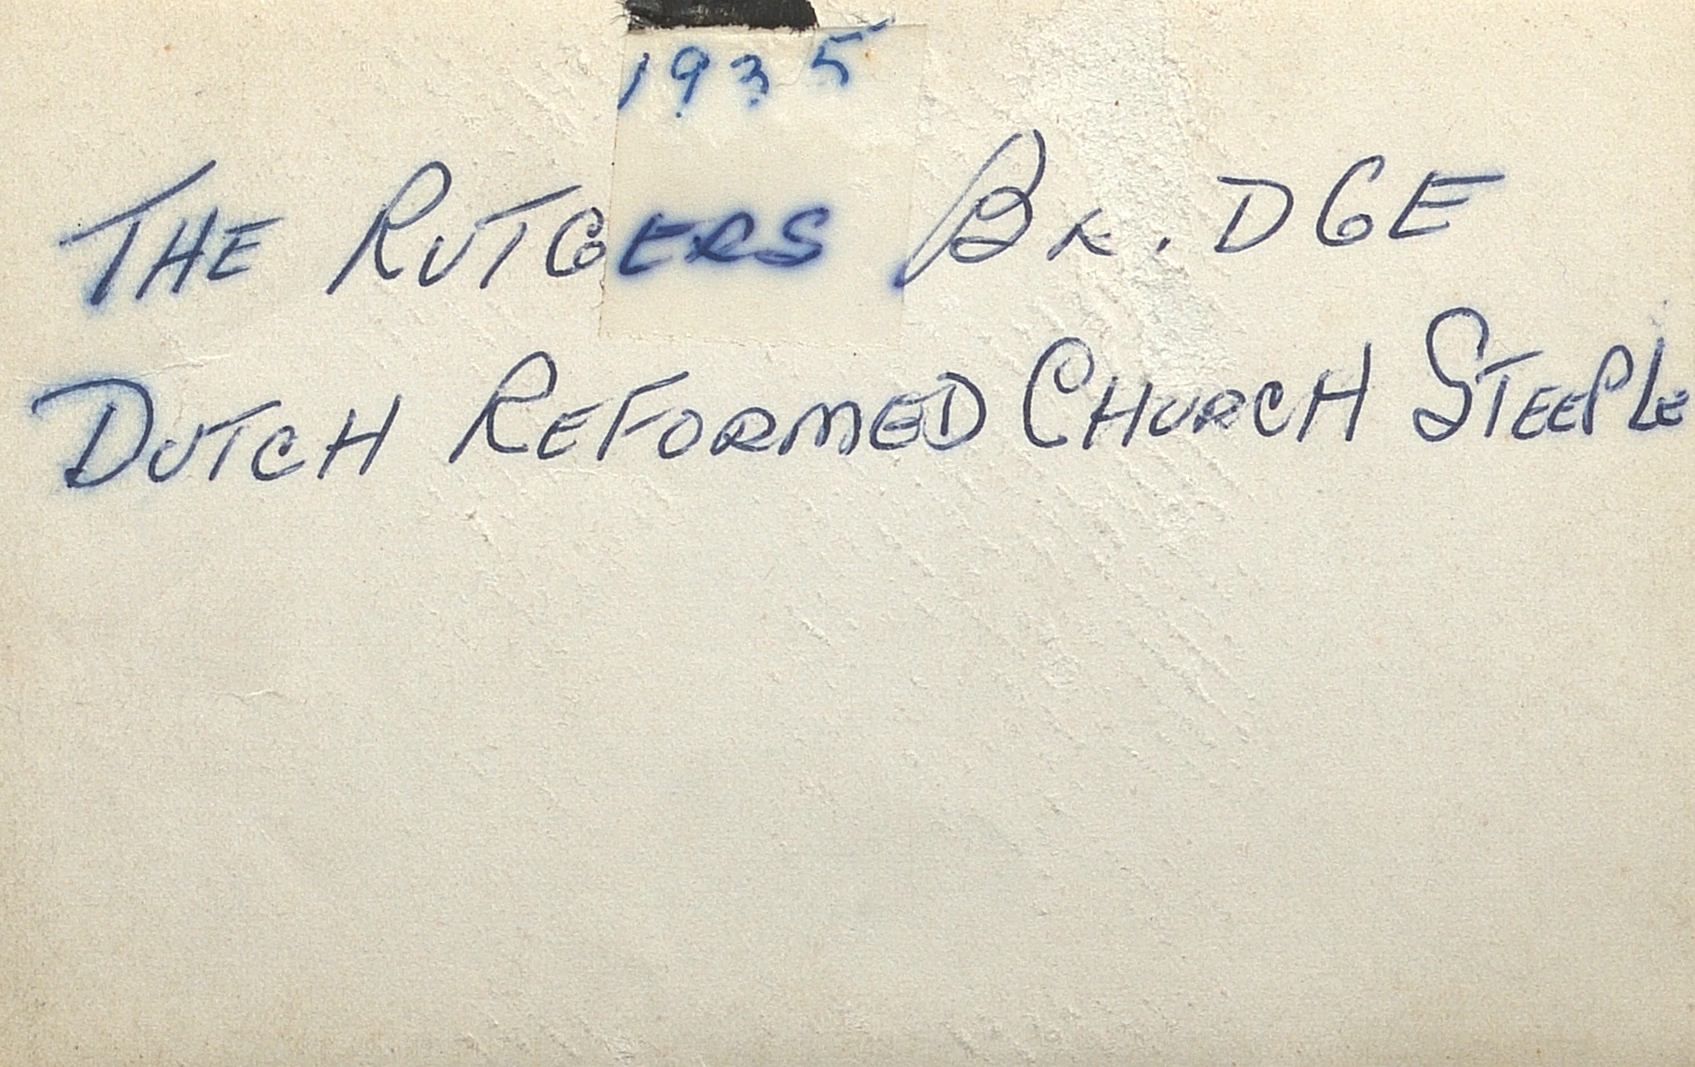 1935
THE RUTGERS BRIDGE
DUTCH REFORMED CHURCH STEEPLE